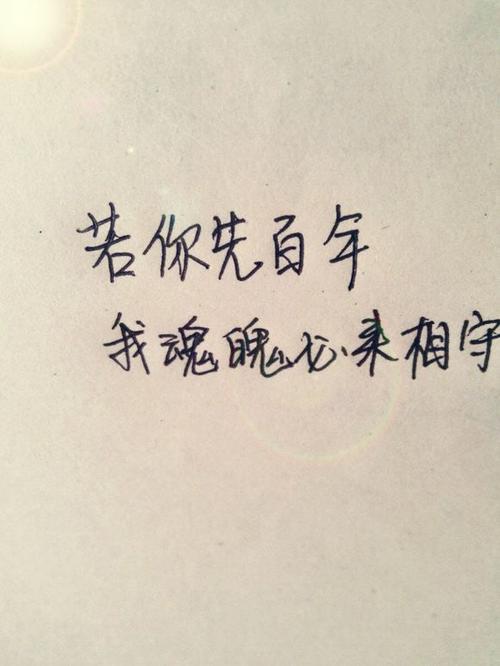 若你先百年
我魂魄必来相守